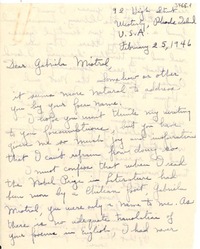 92 High Street
Westerly, Rhode Island
U.S.A
February 25, 1946
Dear Gabriela Mistral,
Somehow or other
it seems more natural to address
you by your pen name.
I hope you won't think my writing
to you presumptuous, but you have
given me so much joy and inspiration
that I can't refrain from doing so.
I must confess that when I read
the Nobel Prize in Literature had
been won by a Chilean Poet, Gabriela
Mistral, you were only a name to me. As
there is no adequate translation of
your poems in English, I had never